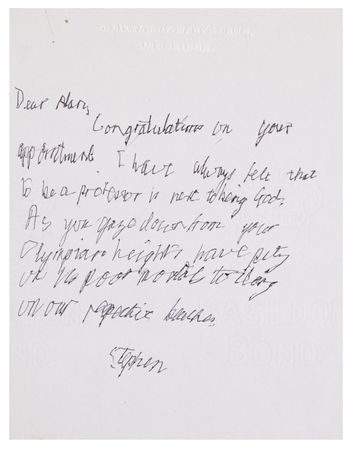 Dear Alan,
Congratulations on your
appointment. I have always felt that
to be a professor is next to being God.
As you gaze down from your
Olympian heights have pity
on us poor mortals
on our respective benches.
Stephen